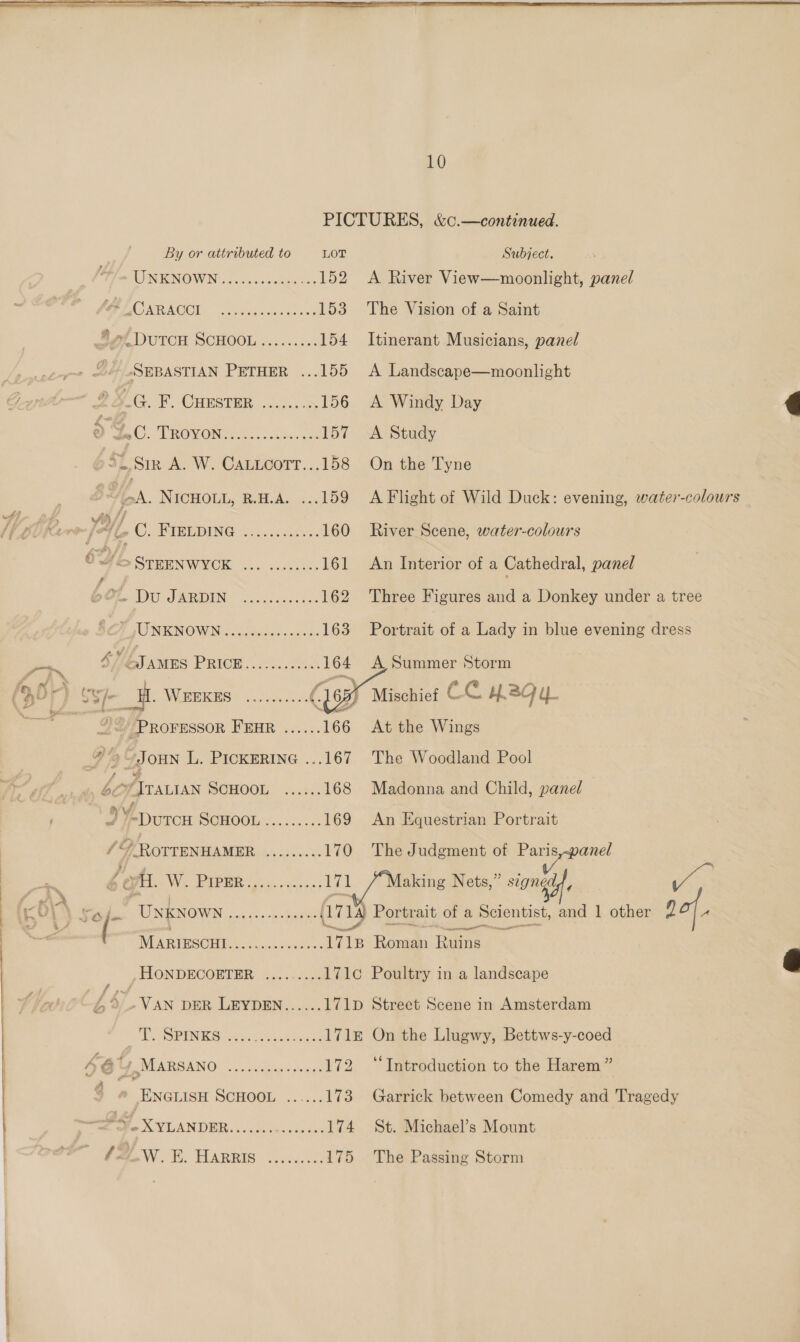 10
PICTURES, &c.—continued.
By or attributed to LOT Subject.
UNKNOWN ............... 152 A River View—moonlight, panel
CARACCI ............... 153 The Vision of a Saint
DUTCH SCHOOL ......... 154 Itinerant Musicians, panel
SEBASTIAN PETHER ...155 A Landscape—moonlight
G. F. CHESTER ......... 156 A Windy Day
C. TROYON ............... 157 A Study
SIR A. W. CALLCOTT...158 On the Tyne
A. NICHOLL, R.H.A. ...159 A Flight of Wild Duck: evening, water-colours
C. FIELDING ............ 160 River Scene, water-colours
STEENWYCK ... ......... 161 An Interior of a Cathedral, panel
DU JARDIN ............ 162 Three Figures and a Donkey under a tree
UNKNOWN ............... 163 Portrait of a Lady in blue evening dress
JAMES PRICE ............ 164 A Summer Storm
H. WEEKES ............ 165 Mischief CC 4394
PROFESSOR FEHR ...... 166 At the Wings
JOHN L. PICKERING ...167 The Woodland Pool
ITALIAN SCHOOL ...... 168 Madonna and Child, panel
DUTCH SCHOOL ......... 169 An Equestrian Portrait
ROTTENHAMER ......... 170 The Judgment of Paris, panel
H. W. PIPER ............ 171 "Making Nets," signed
50/- UNKNOWN ............ 171A Portrait of a Scientist, and 1 other 20/-
MARIESCHI ............... 171B Roman Ruins
HONDECOETER ......... 171C Poultry in a landscape
VAN DER LEYDEN ...... 171D Street Scene in Amsterdam
T. SPINKS ............... 171E On the Llugwy, Bettws-y-coed
MARSANO ............... 172 "Introduction to the Harem"
ENGLISH SCHOOL ...... 173 Garrick between Comedy and Tragedy
XYLANDER ............... 174 St. Michael's Mount
W. E. HARRIS ......... 175 The Passing Storm